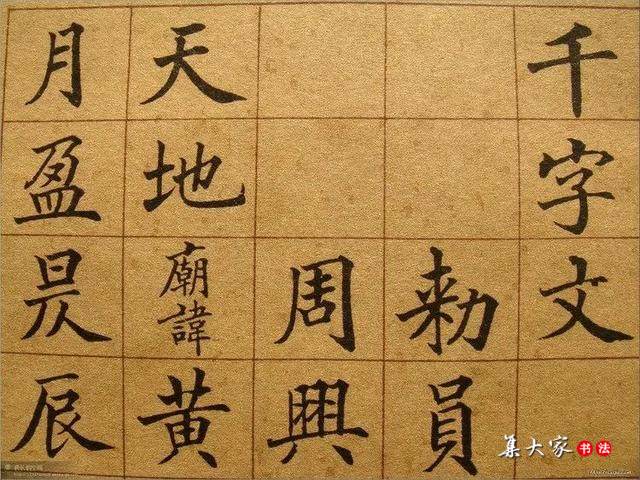 千字文
勑員
周興
天地廟諱黃
月盈昃辰
集大家书法